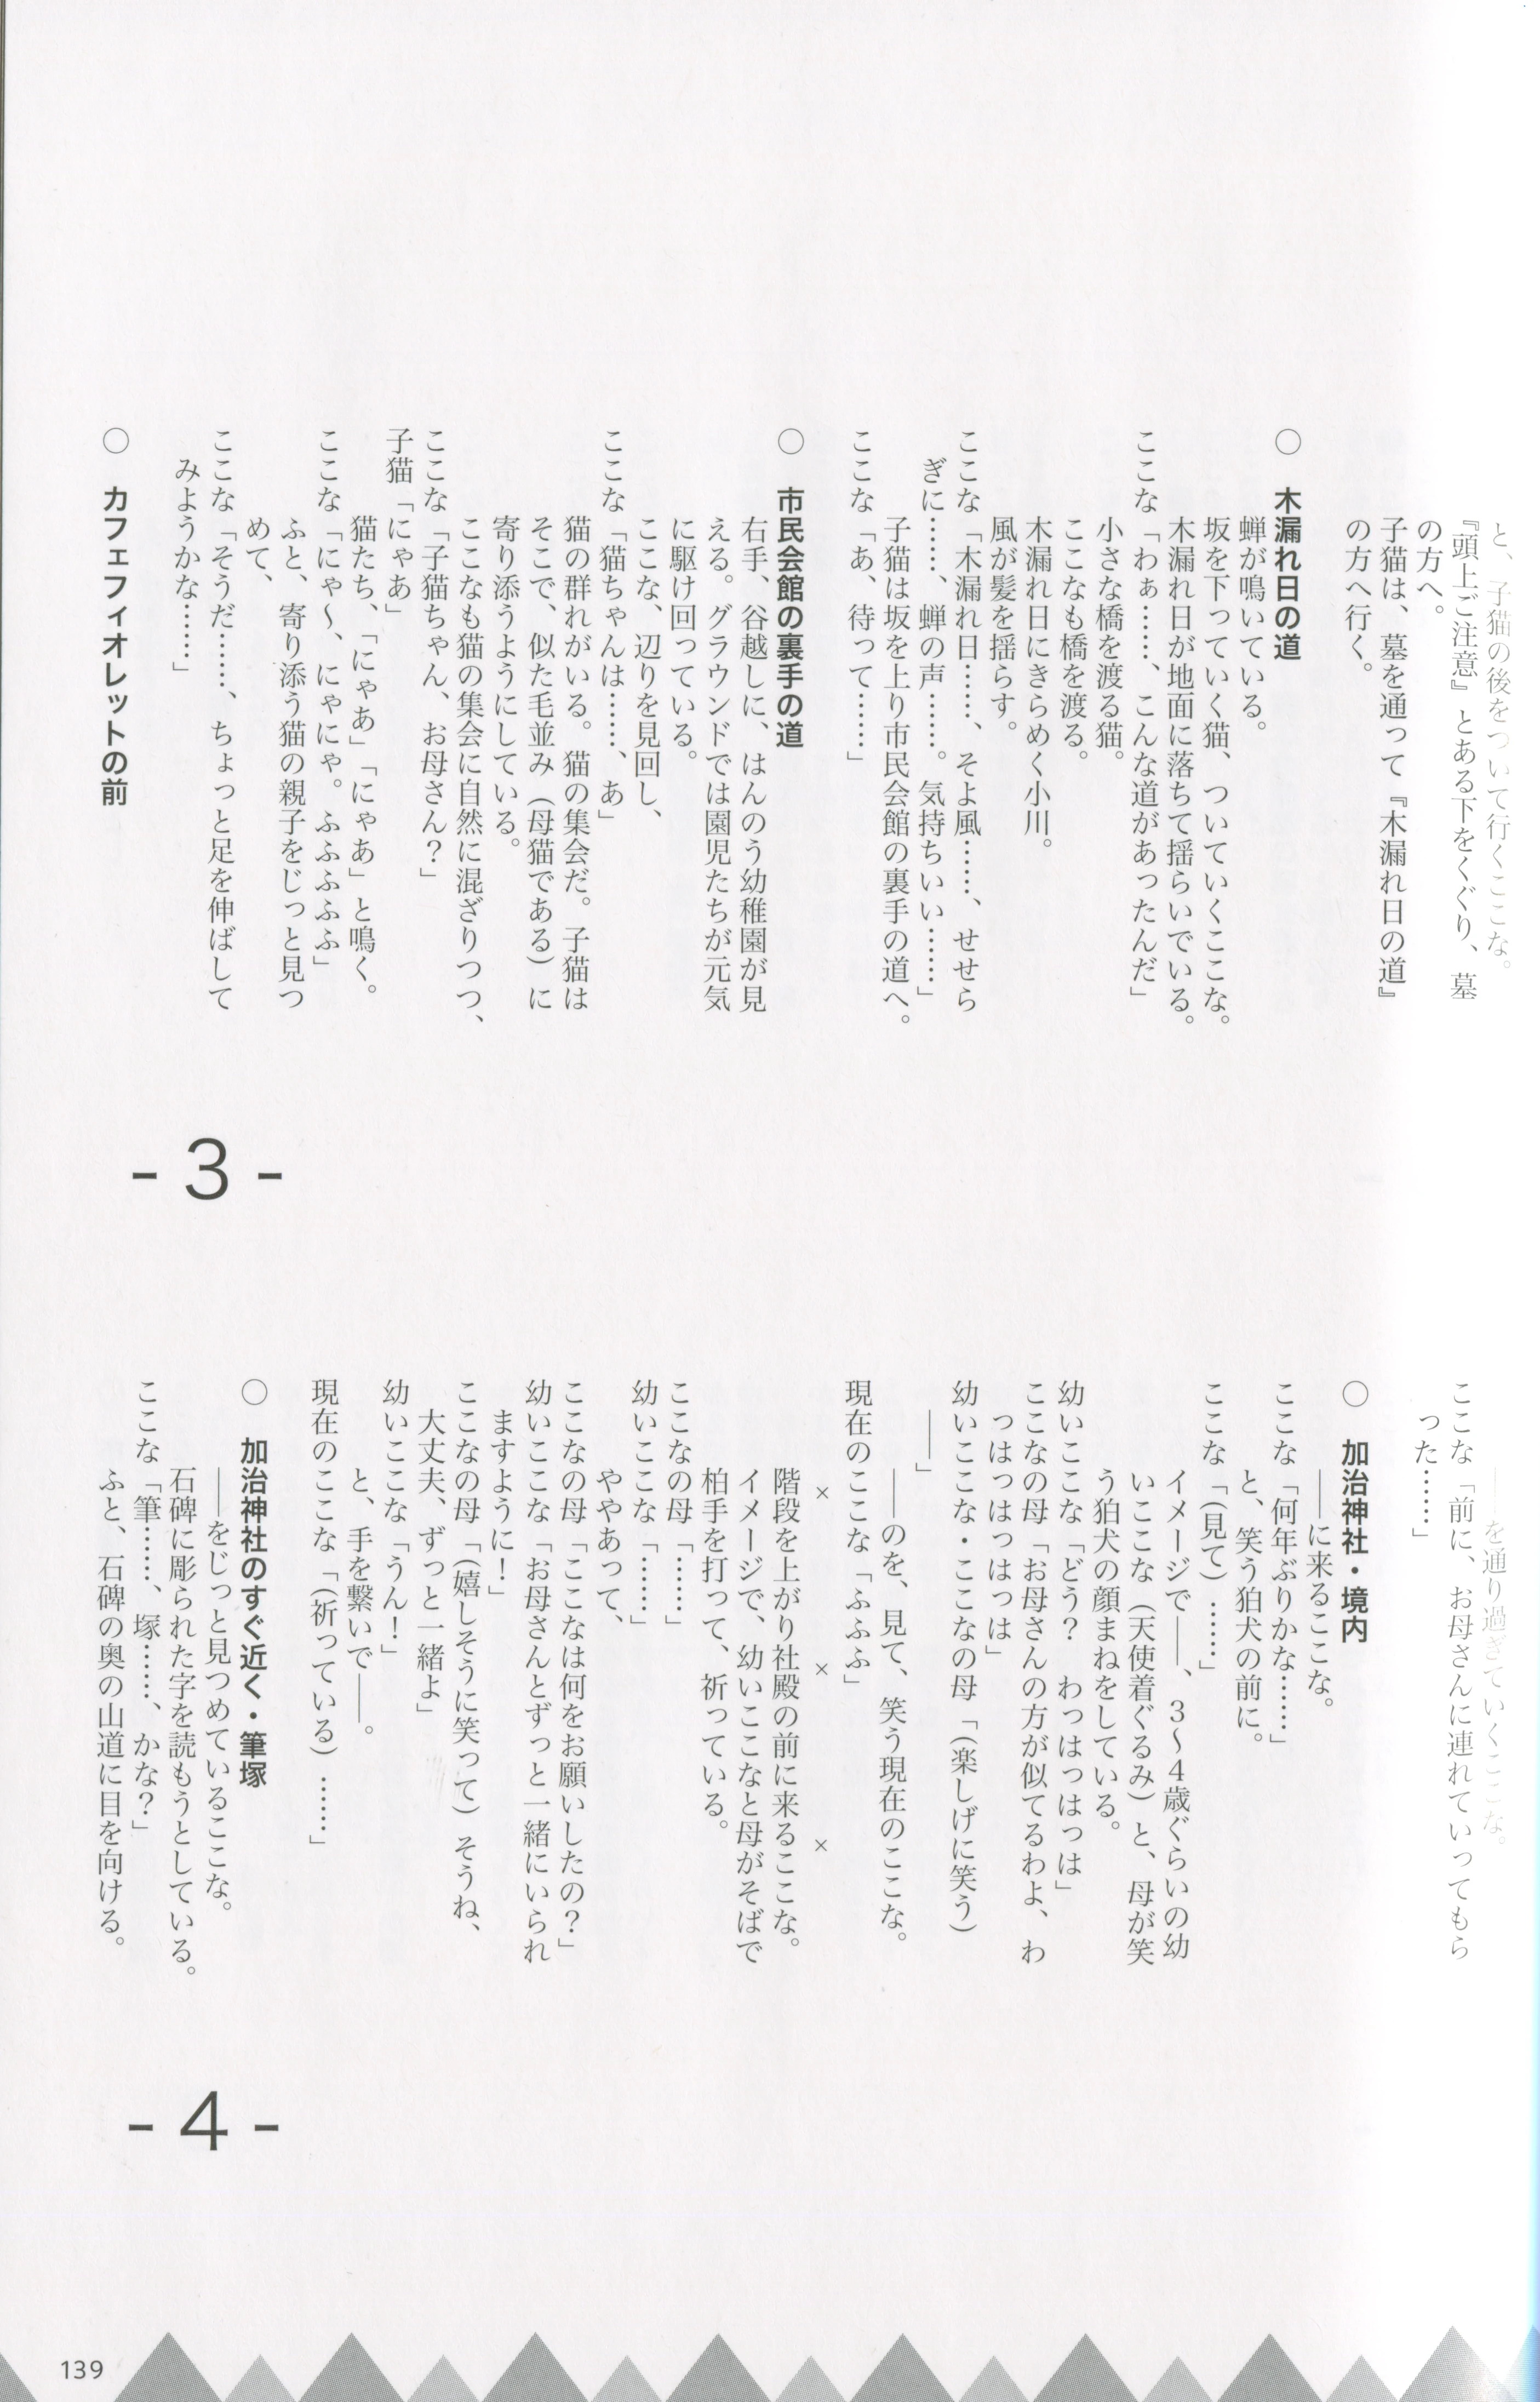 と、子猫の後をついて行くここな。
『頭上ご注意』とある下をくぐり、墓
の方へ。
子猫は、墓を通って『木漏れ日の道』
の方へ行く。
○　木漏れ日の道
蝉が鳴いている。
坂を下っていく猫、ついていくここな。
木漏れ日が地面に落ちて揺らいでいる。
ここな「わぁ……、こんな道があったんだ」
小さな橋を渡る猫。
ここなも橋を渡る。
木漏れ日にきらめく小川。
風が髪を揺らす。
ここな「木漏れ日……、そよ風……、せせら
ぎに……、蝉の声……。気持ちいい……」
子猫は坂を上り市民会館の裏手の道へ。
ここな「あ、待って……」
○　市民会館の裏手の道
右手、谷越しに、はんのう幼稚園が見
える。グラウンドでは園児たちが元気
に駆け回っている。
ここな、辺りを見回し、
ここな「猫ちゃんは……、あ」
猫の群れがいる。猫の集会だ。子猫は
そこで、似た毛並み（母猫である）に
寄り添うようにしている。
ここなも猫の集会に自然に混ざりつつ、
ここな「子猫ちゃん、お母さん？」
子猫「にゃあ」
猫たち、「にゃあ」「にゃあ」と鳴く。
ここな「にゃ〜、にゃにゃ。ふふふふふ」
ふと、寄り添う猫の親子をじっと見つ
めて、
ここな「そうだ……、ちょっと足を伸ばして
みようかな……」
○　カフェフィオレットの前
- 3 -
――を通り過ぎていくここな。
ここな「前に、お母さんに連れていってもら
った……」
○　加治神社・境内
――に来るここな。
ここな「何年ぶりかな……」
と、笑う狛犬の前に。
ここな「（見て）……」
イメージで――、３〜４歳ぐらいの幼
いここな（天使着ぐるみ）と、母が笑
う狛犬の顔まねをしている。
幼いここな「どう？　わっはっはっは」
ここなの母「お母さんの方が似てるわよ、わ
っはっはっはっは」
幼いここな・ここなの母「（楽しげに笑う）
――」
――のを、見て、笑う現在のここな。
現在のここな「ふふふ」
×　×　×
階段を上がり社殿の前に来るここな。
イメージで、幼いここなと母がそばで
柏手を打って、祈っている。
ここなの母「……」
幼いここな「……」
ややあって、
ここなの母「ここなは何をお願いしたの？」
幼いここな「お母さんとずっと一緒にいられ
ますように！」
ここなの母「（嬉しそうに笑って）そうね、
大丈夫、ずっと一緒よ」
幼いここな「うん！」
と、手を繋いで――。
現在のここな「（祈っている）……」
○　加治神社のすぐ近く・筆塚
――をじっと見つめているここな。
石碑に彫られた字を読もうとしている。
ここな「筆……、塚……、かな？」
ふと、石碑の奥の山道に目を向ける。
- 4 -
139